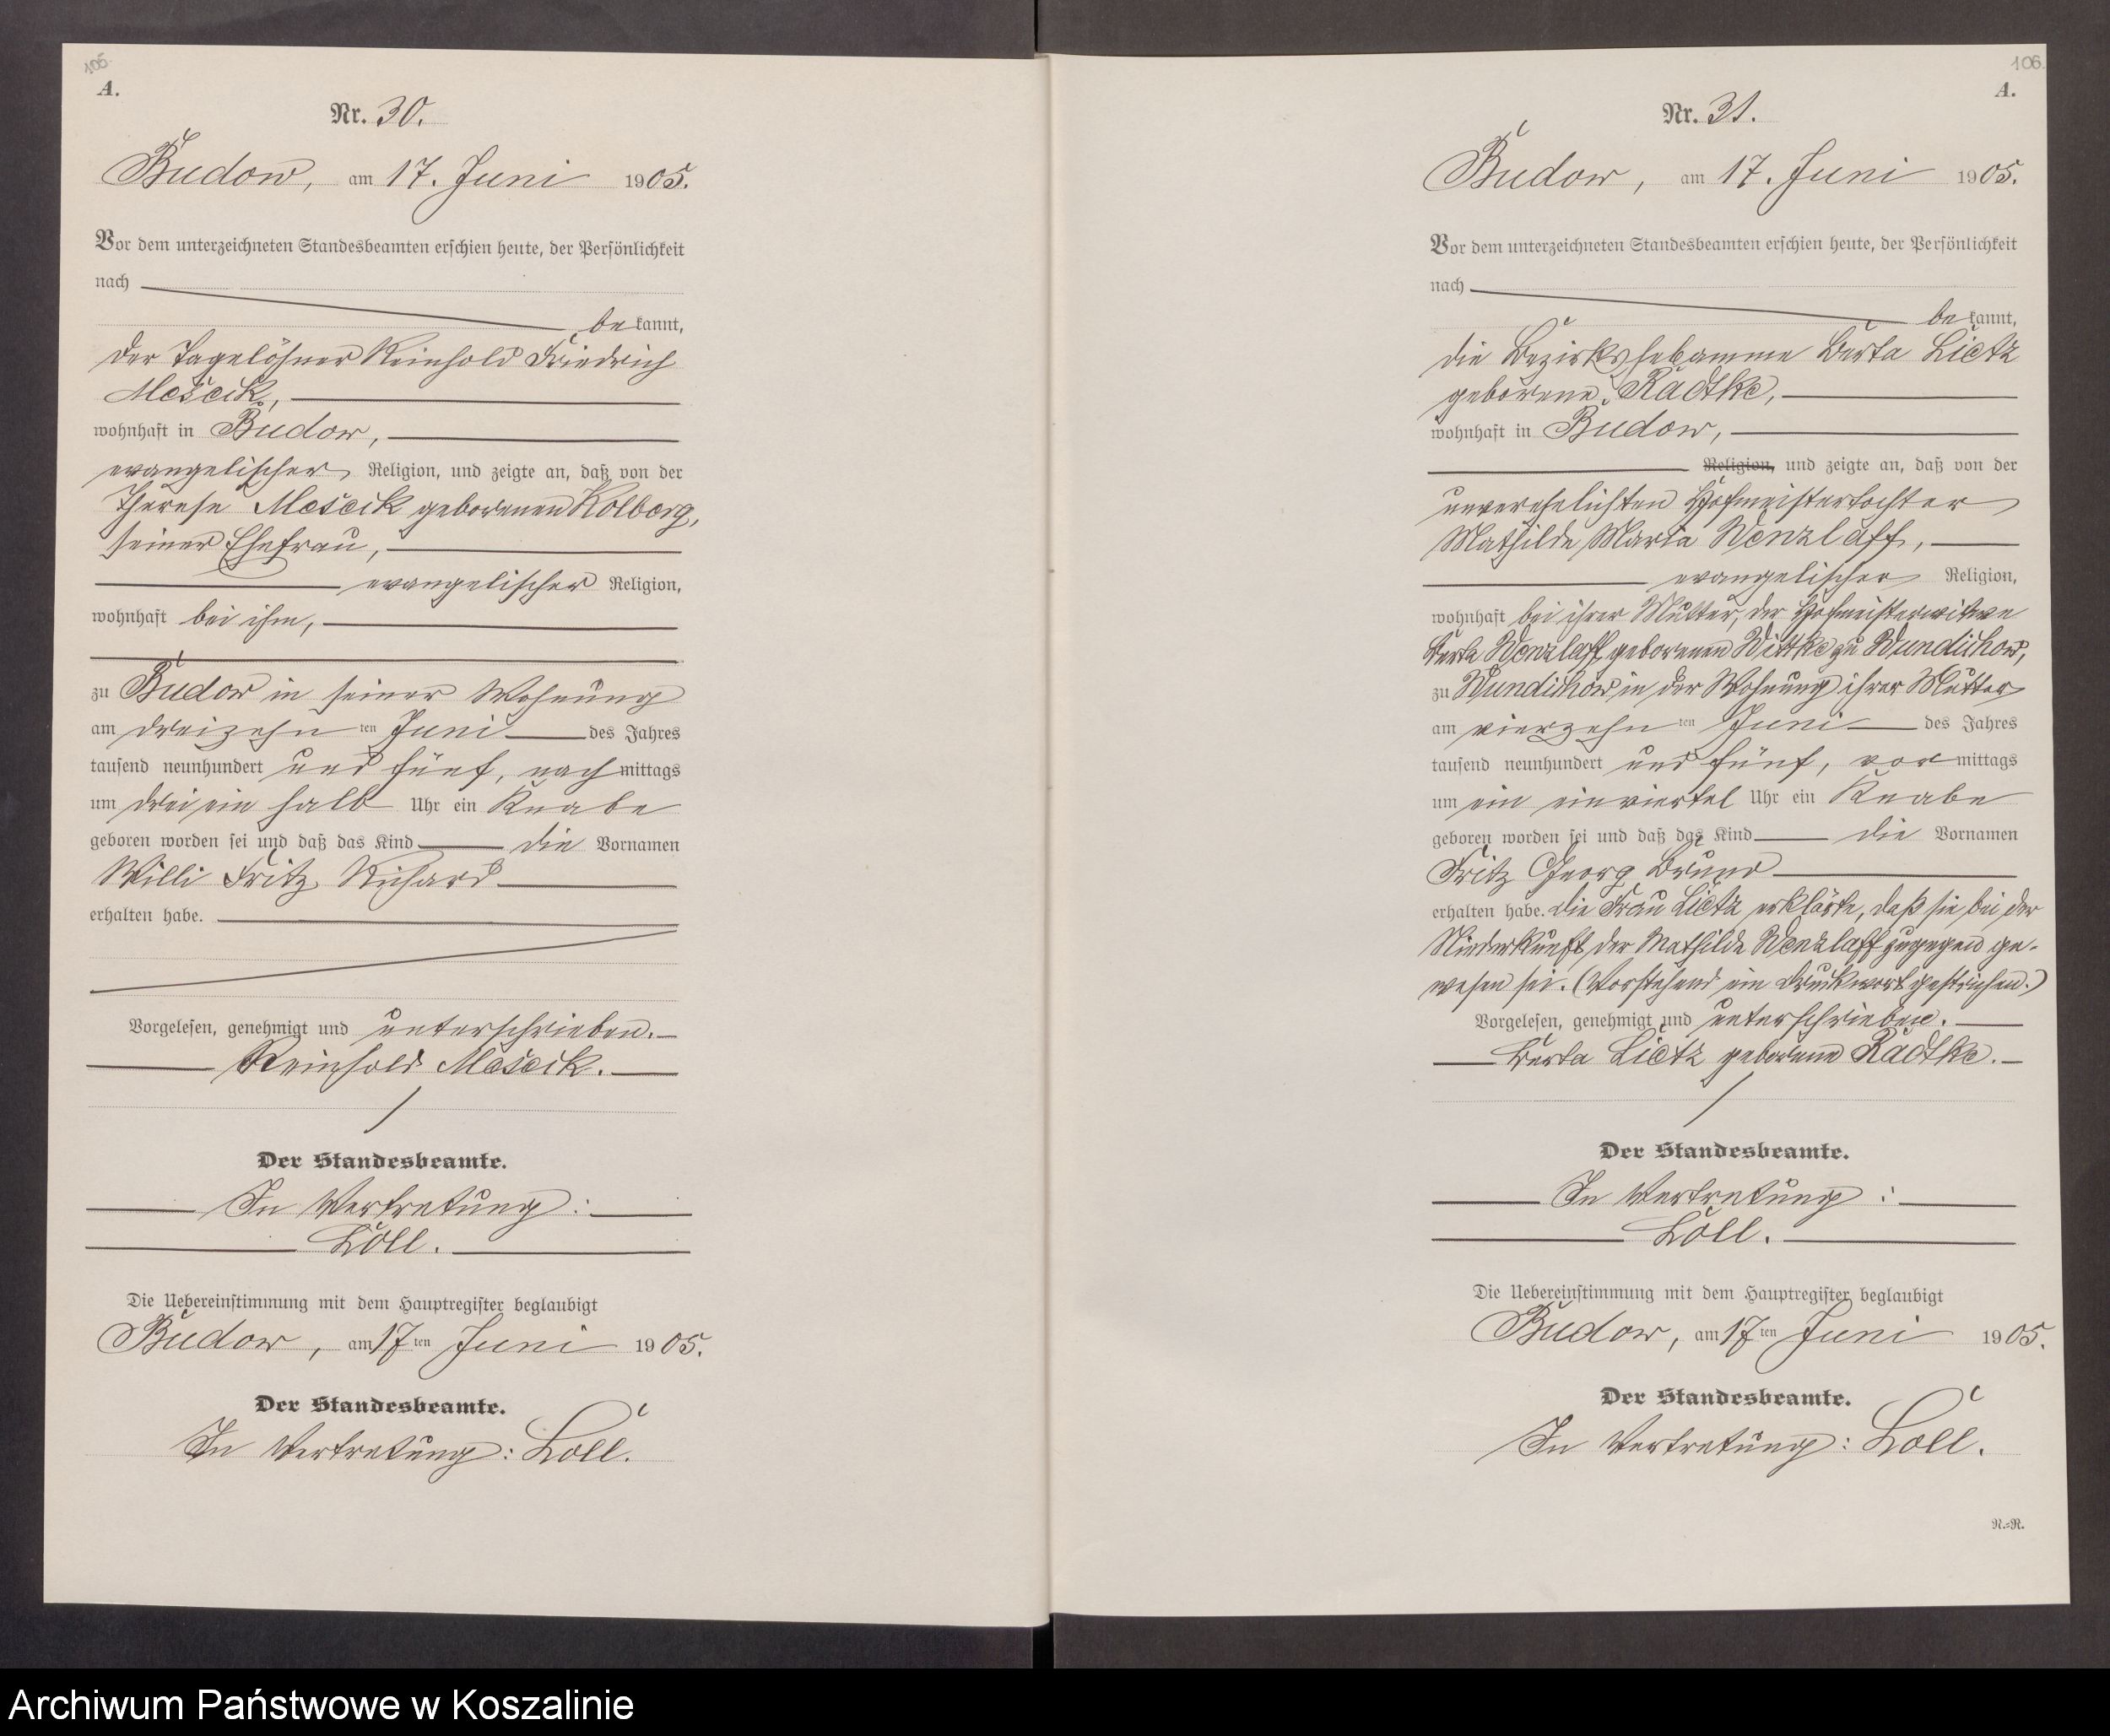 105.
A.
Nr. 30.
Budow, am 17. Juni 1905.
Vor dem unterzeichneten Standesbeamten erschien heute, der Persönlichkeit
nach
bekannt,
der Tagelöhner Reinhold Friedrich
Mescik,
wohnhaft in Budow,
evangelischer Religion, und zeigte an, daß von der
Therese Mescik geborenen Kolberg,
seiner Ehefrau,
evangelischer Religion,
wohnhaft bei ihm,
zu Budow in seiner Wohnung
am dreizehnten Juni des Jahres
tausend neunhundert und fünf, nachmittags
um drei ein halb Uhr ein Knabe
geboren worden sei und daß das Kind die Vornamen
Willi Fritz Richard
erhalten habe.
Vorgelesen, genehmigt und unterschrieben.
Reinhold Mescik.
Der Standesbeamte.
In Vertretung:
Loll.
Die Uebereinstimmung mit dem Hauptregister beglaubigt
Budow, am 17ten Juni 1905.
Der Standesbeamte.
In Vertretung: Loll.
106.
A.
Nr. 31.
Budow, am 17. Juni 1905.
Vor dem unterzeichneten Standesbeamten erschien heute, der Persönlichkeit
nach
bekannt,
die Bezirkshebamme Berta Lietz
geborene Radtke,
wohnhaft in Budow,
Religion, und zeigte an, daß von der
unverehelichten Hofmeistertochter
Mathilde Marta Wenzlaff,
evangelischer Religion,
wohnhaft bei ihrer Mutter, der Hofmeisterwitwe
Berta Wenzlaff, geborenen Wittke zu Wundichow,
zu Wundichow in der Wohnung ihrer Mutter
am vierzehnten Juni des Jahres
tausend neunhundert und fünf, vormittags
um ein einviertel Uhr ein Knabe
geboren worden sei und daß das Kind die Vornamen
Fritz Georg Bruno
erhalten habe. Die Frau Lietz erklärte, daß sie bei der
Niederkunft der Mathilde Wenzlaff zugegen ge-
wesen sei. (Vorstehend ein Druckwort gestrichen.)
Vorgelesen, genehmigt und unterschrieben.
Berta Lietz geborene Radtke.
Der Standesbeamte.
In Vertretung:
Loll.
Die Uebereinstimmung mit dem Hauptregister beglaubigt
Budow, am 17ten Juni 1905.
Der Standesbeamte.
In Vertretung: Loll.
N.=R.
Archiwum Państwowe w Koszalinie